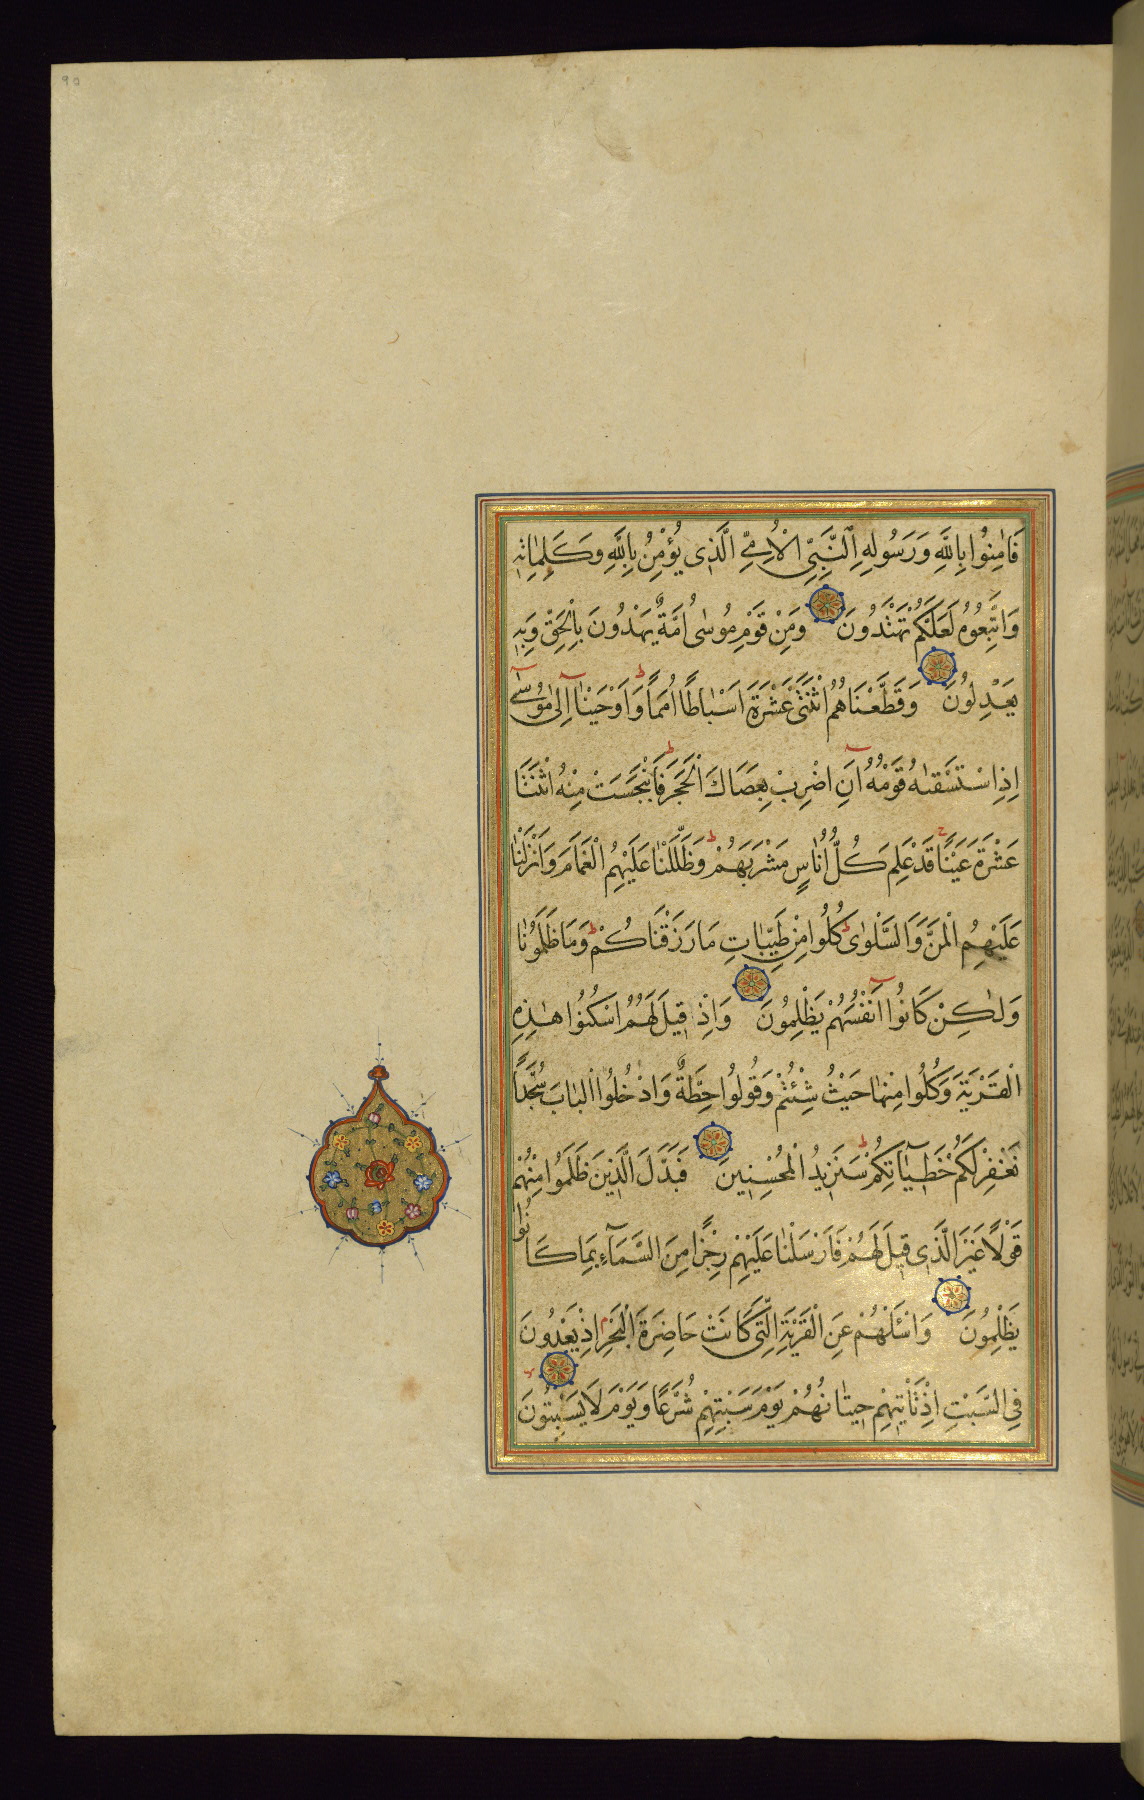 فَاٰمِنُوا بِاللّٰهِ وَرَسُولِهِ النَّبِيِّ الْاُمِّيِّ الَّذِى يُؤْمِنُ بِاللّٰهِ وَكَلِمَاتِهٖ
وَاتَّبِعُوهُ لَعَلَّكُمْ تَهْتَدُونَ وَمِنْ قَوْمِ مُوسٰى اُمَّةٌ يَهْدُونَ بِالْحَقِّ وَبِهٖ
يَعْدِلُونَ وَقَطَّعْنَاهُمُ اثْنَتَىْ عَشْرَةَ اَسْبَاطًا اُمَمًا وَاَوْحَيْنَا اِلٰى مُوسٰى
اِذِ اسْتَسْقٰيهُ قَوْمُهُ اَنِ اضْرِبْ بِعَصَاكَ الْحَجَرَ فَانْبَجَسَتْ مِنْهُ اثْنَتَا
عَشْرَةَ عَيْنًا قَدْ عَلِمَ كُلُّ اُنَاسٍ مَشْرَبَهُمْ وَظَلَّلْنَا عَلَيْهِمُ الْغَمَامَ وَاَنْزَلْنَا
عَلَيْهِمُ الْمَنَّ وَالسَّلْوٰى كُلُوا مِنْ طَيِّبَاتِ مَا رَزَقْنَاكُمْ وَمَا ظَلَمُونَا
وَلٰكِنْ كَانُوا اَنْفُسَهُمْ يَظْلِمُونَ وَاِذْ قِيلَ لَهُمُ اسْكُنُوا هٰذِهِ
الْقَرْيَةَ وَكُلُوا مِنْهَا حَيْثُ شِئْتُمْ وَقُولُوا حِطَّةٌ وَادْخُلُوا الْبَابَ سُجَّدًا
نَغْفِرْ لَكُمْ خَطِيٓاٰتِكُمْ سَنَزِيدُ الْمُحْسِنِينَ فَبَدَّلَ الَّذِينَ ظَلَمُوا مِنْهُمْ
قَوْلًا غَيْرَ الَّذِى قِيلَ لَهُمْ فَاَرْسَلْنَا عَلَيْهِمْ رِجْزًا مِنَ السَّمَآءِ بِمَا كَانُوا
يَظْلِمُونَ وَاسْئَلْهُمْ عَنِ الْقَرْيَةِ الَّتِى كَانَتْ حَاضِرَةَ الْبَحْرِ اِذْ يَعْدُونَ
فِى السَّبْتِ اِذْ تَاْتِيهِمْ حِيتَانُهُمْ يَوْمَ سَبْتِهِمْ شُرَّعًا وَيَوْمَ لَا يَسْبِتُونَ